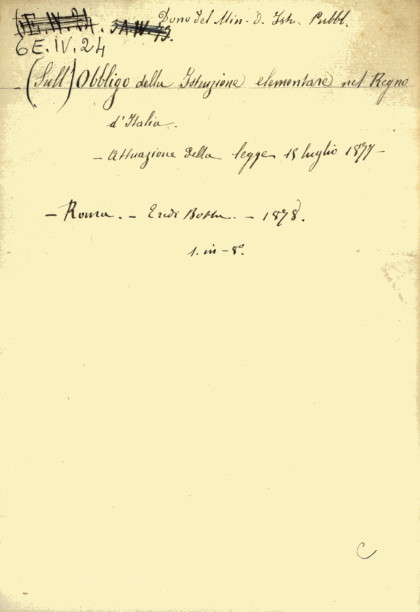 Dono del Min. D. Ist. Pubbl.
6E.IV.24
(Sull') Obbligo della Istruzione elementare nel Regno
d'Italia.
- Attuazione della legge 15 luglio 1877 -
- Roma. - Eredi Botta. - 1878.
1. in-8º.
C